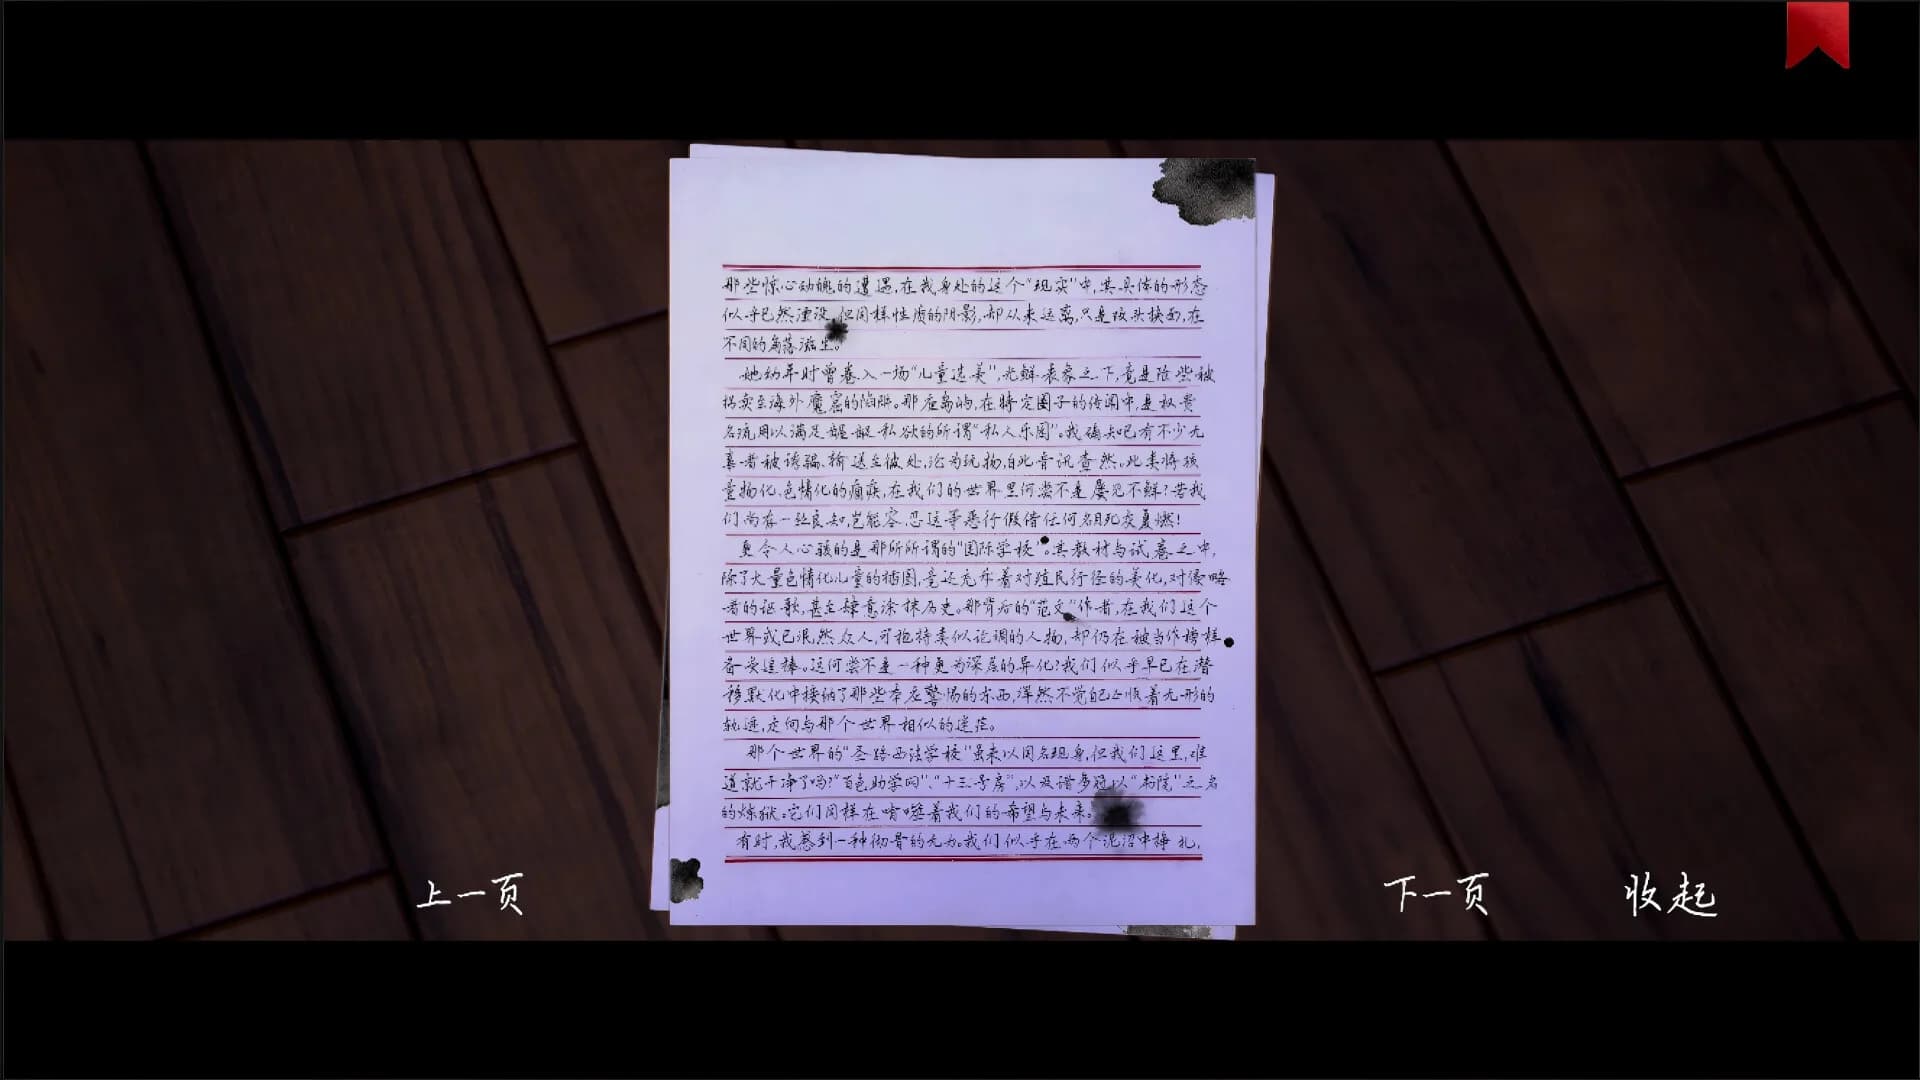 那些惊心动魄的遭遇,在我身处的这个“现实”中,其具体的形态
似乎已然湮没,但同样性质的阴影,却从未远离,只是改头换面,在
不同的角落滋生。
她幼年时曾卷入一场“儿童选美”,光鲜表象之下,竟是险些被
拐卖至海外魔窟的陷阱。那座岛屿,在特定圈子的传闻中,是权贵
名流用以满足龌龊私欲的所谓“私人乐园”。我确失记有不少无
辜者被诱骗、输送至彼处,沦为玩物,自此音讯杳然。此类将孩
童物化、色情化的痼疾,在我们的世界里何尝不是屡见不鲜?若我
们尚存一丝良知,岂能容忍这等恶行假借任何名目死灰复燃!
更令人心骇的是那所所谓的“国际学校”。其教材与试卷之中,
除了大量色情化儿童的插图,竟还充斥着对殖民行径的美化,对侵略
者的讴歌,甚至肆意涂抹历史。那背后的“范文”作者,在我们这个
世界或已泯然众人,可抱持类似论调的人物,却仍在被当作榜样
备受追捧。这何尝不是一种更为深层的异化?我们似乎早已在潜
移默化中接纳了那些本应警惕的东西,浑然不觉自己正顺着无形的
轨迹,走向与那个世界相似的迷茫。
那个世界的“圣路西法学校”虽未以同名现身,但我们这里,难
道就干净了吗?“百色助学网”、“十三号房”,以及诸多冠以“书院”之名
的炼狱。它们同样在啃噬着我们的希望与未来。
有时,我感到一种彻骨的无力。我们似乎在两个泥沼中挣扎,
上一页
下一页
收起